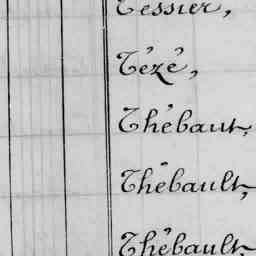 Tessier,
Tézé,
Thébaut,
Thébault,
Thébault,